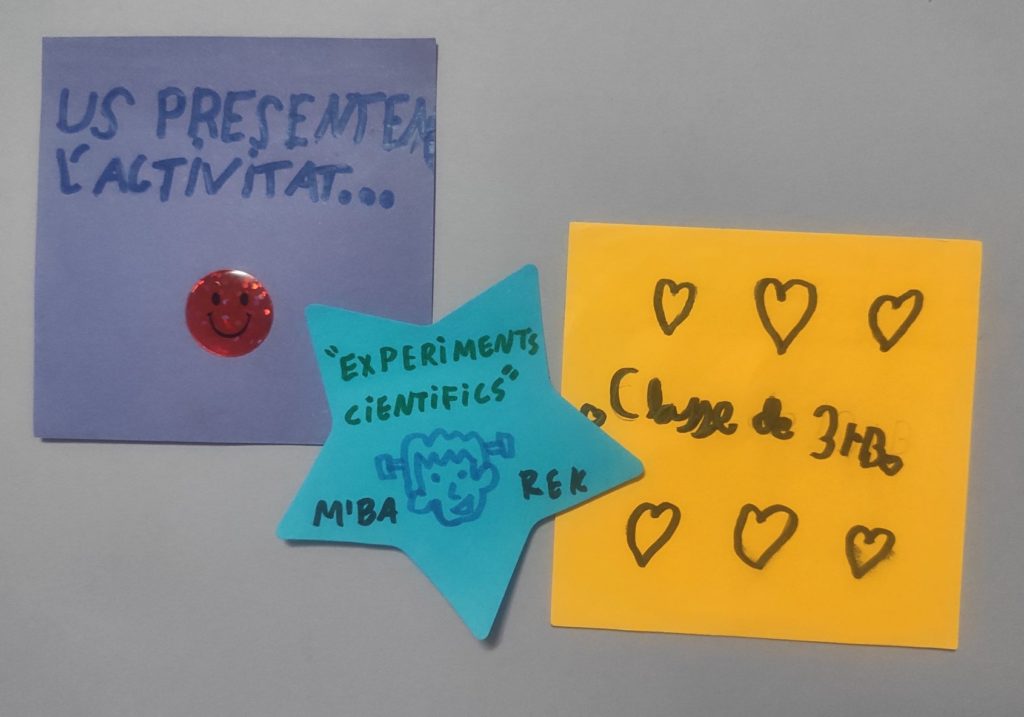 US PRESENTEN
L'ACTIVITAT...
"EXPERIMENTS
CIENTIFICS"
M'BA REK
Classe de